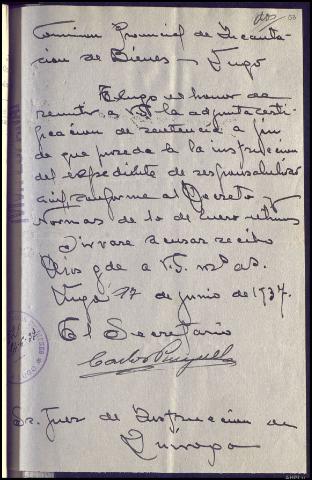 53
Comision Provincial de Incauta-
cion de Bienes - Lugo
Tengo el honor de
remitir a VS la adjunta certi-
ficacion de sentencia a fin
de que proceda a la instruccion
del expediente de responsabilidad
civil conforme al Decreto y
Normas de 10 de Enero ultimo
Sirvase acusar recibo
Dios gde a V.S. ms as.
Lugo 17 de junio de 1937.
El Secretario
Carlos
Sr. Juez de Instruccion de
Quiroga